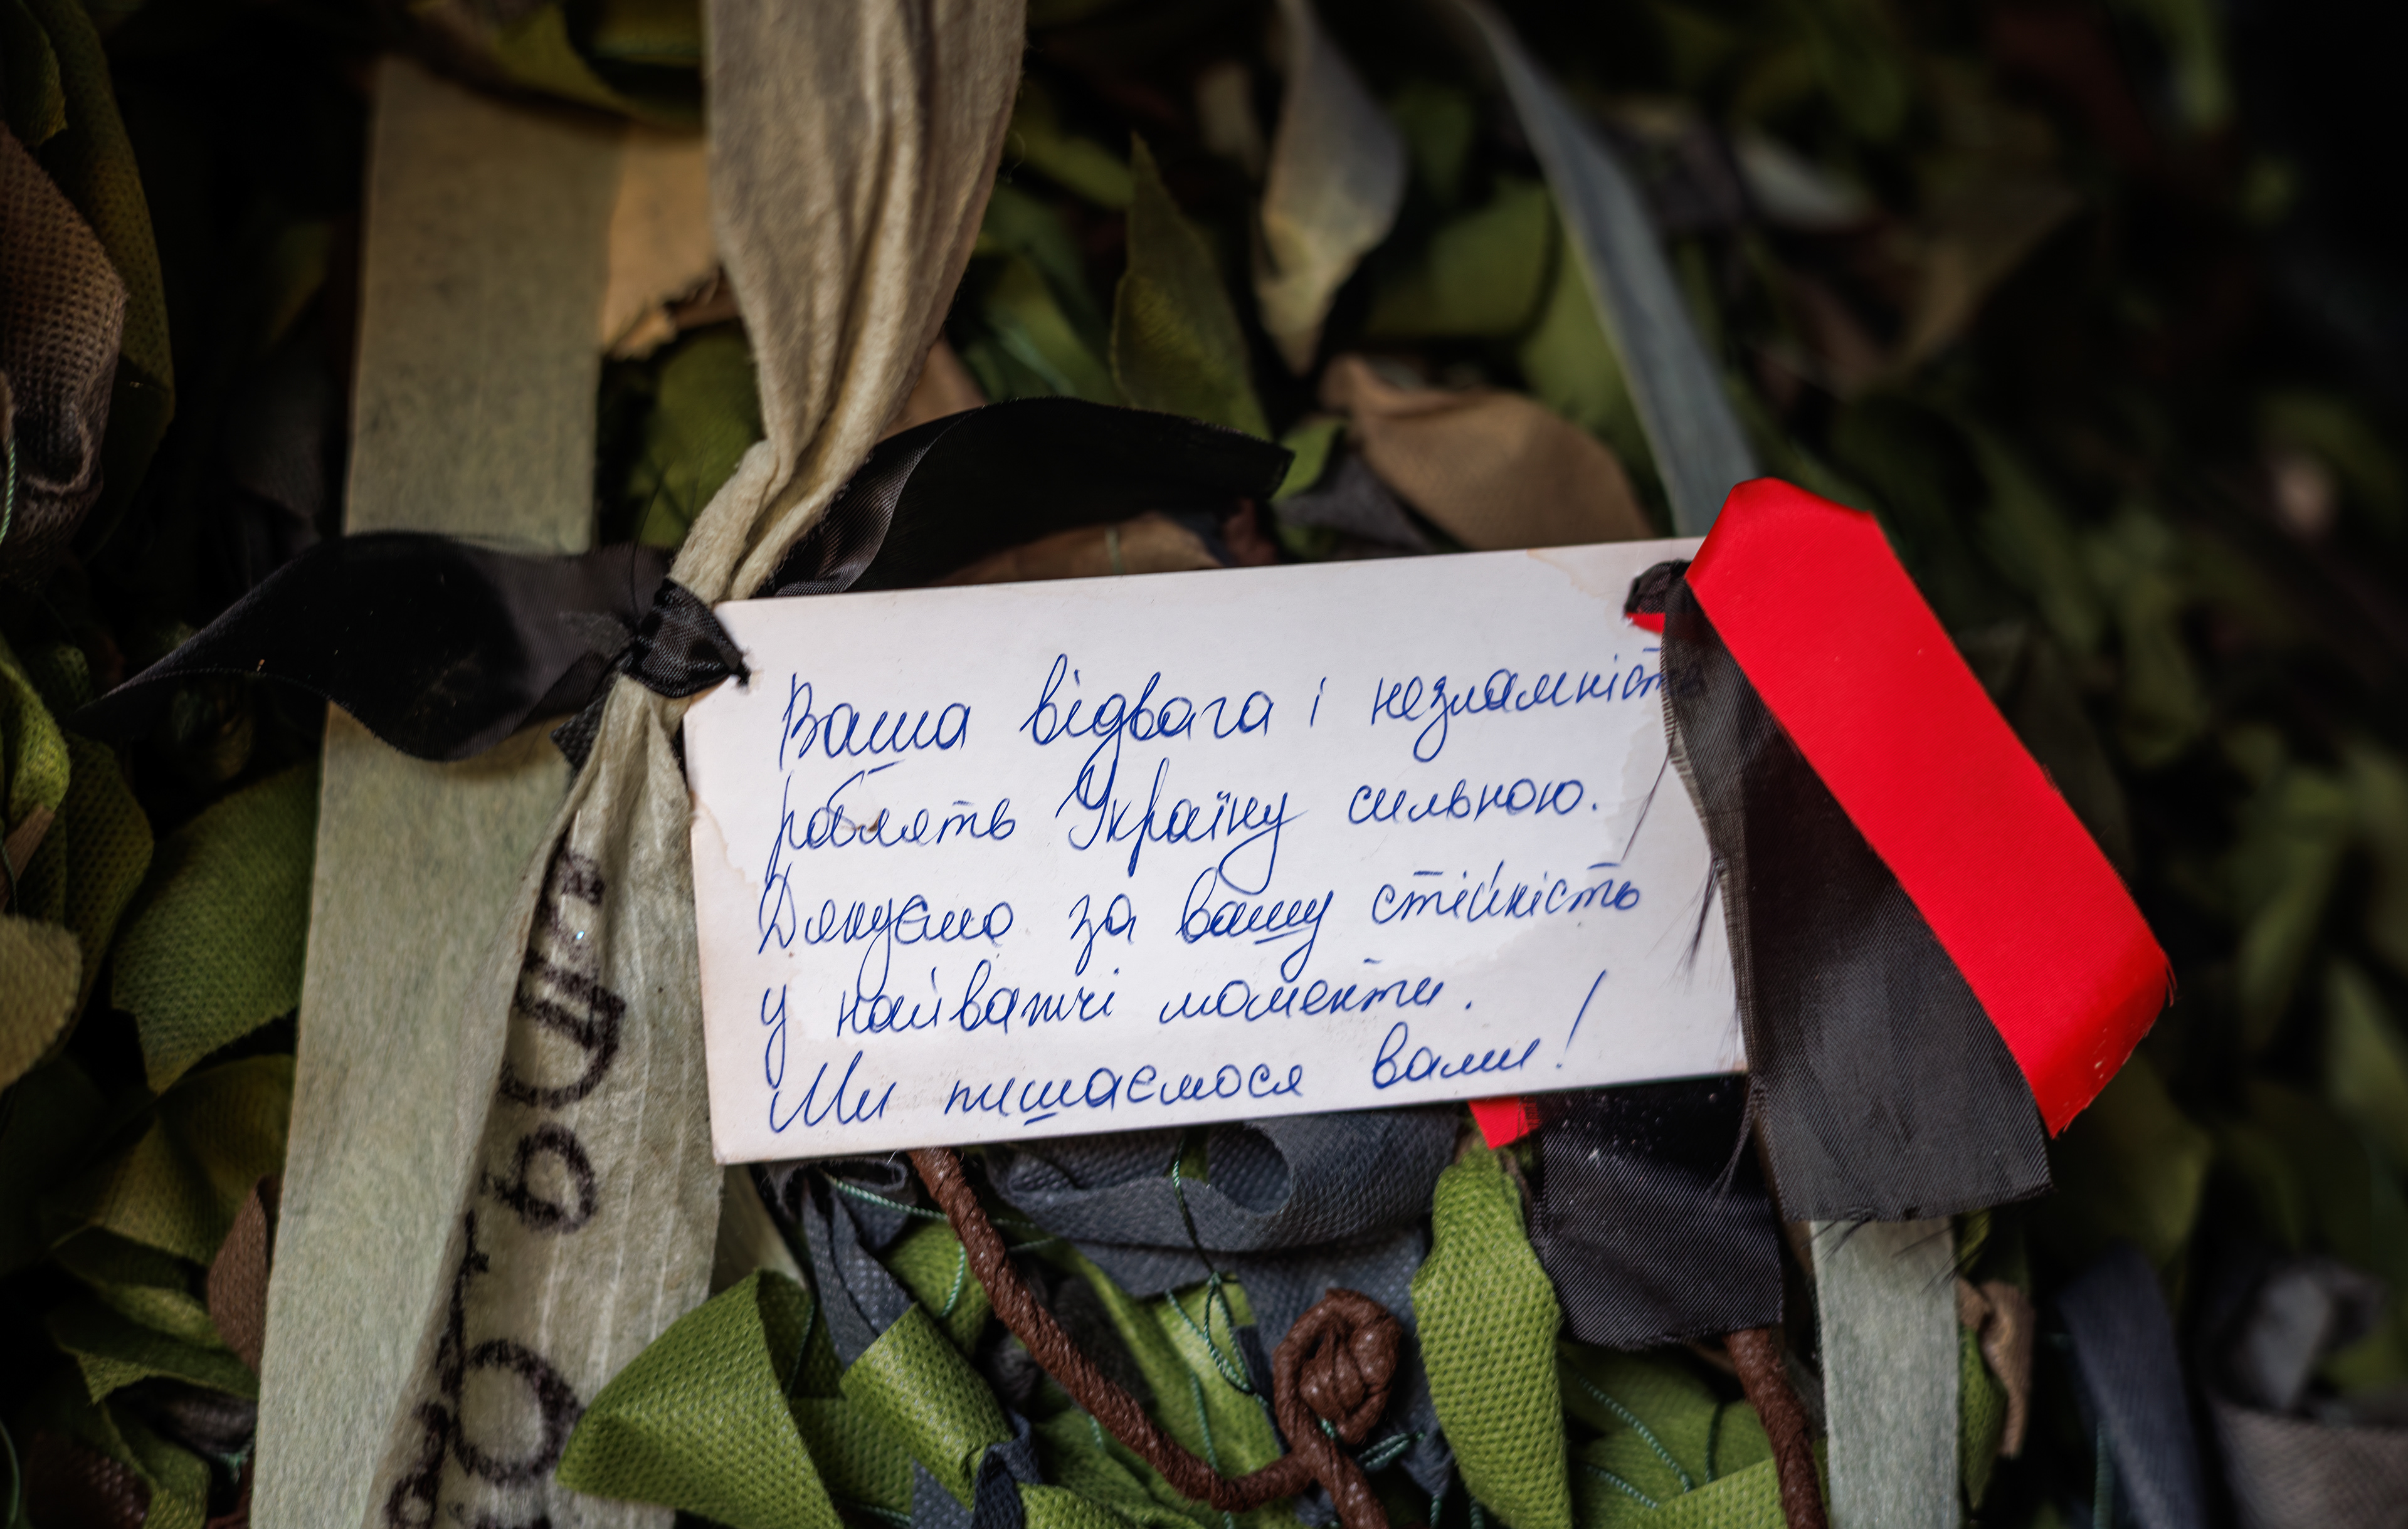 Ваша відвага і незламність
роблять Україну сильною.
Дякуємо за вашу стійкість
у найважчі моменти.
Ми пишаємося вами!